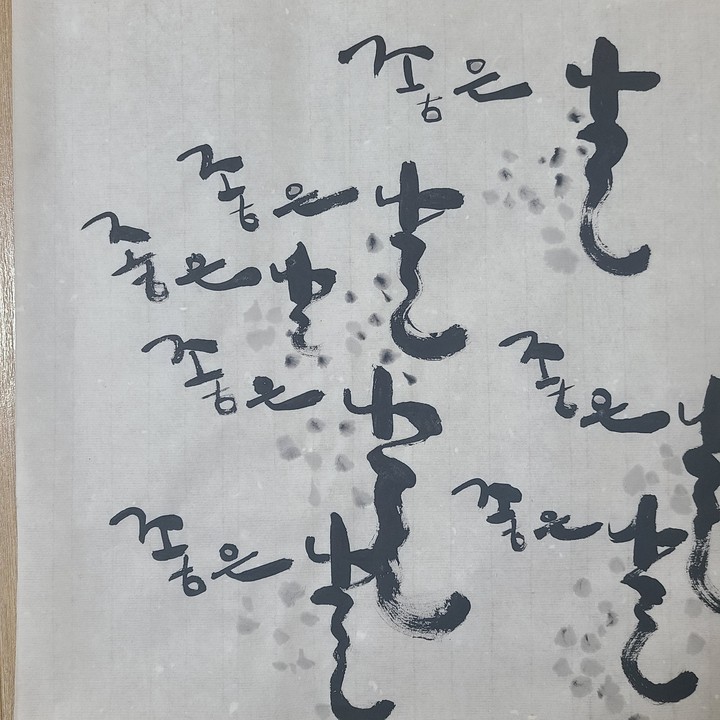 좋은 날
좋은 날
좋은 날
좋은 날
좋은 날
좋은 날
좋은 날